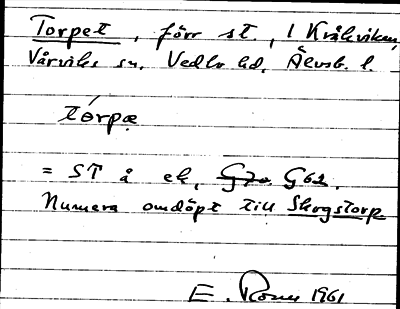 Torpet, förr st., l Kråkviken,
Vårviks sn. Vedbo hd, Älvsb. l.
tórpæ
= ST å ek, G70 G62.
Numera omdöpt till Skogstorp
E. 1961